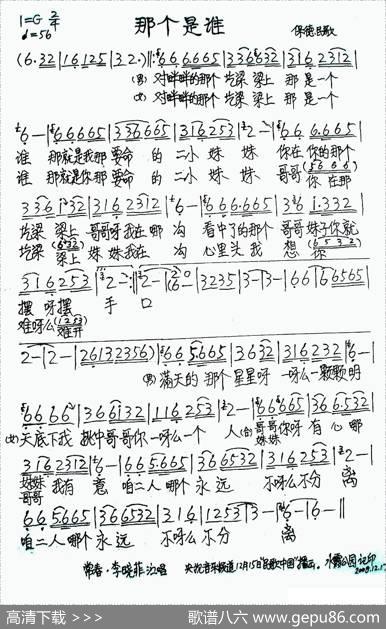 1=G 2/4 那个是谁
♩=56 保德民歌
(6·32|16125|3 2·)‖:66 6665|336832|316 2312|
(男)对畔畔的那个圪梁梁上 那是一个
(女)对畔畔的那个圪梁梁上 那是一个
6—|666665|336665|316253|2—|66 6·665|
谁 那就是我那要命 的 二小妹 妹 你在你的那个
谁 那就是你那要命 的 二小妹 妹 哥哥你在那
336 132|316 2312|6—|66 6665|336 1·332|
圪梁 梁上 哥哥呀我在哪 沟 看中了的那个哥哥妹子你就
圪梁 梁上 妹妹我在 沟 心里头我 想 你
316253|2—:‖2—|2 0|3235|3—3—|66 166565|
摆 呀摆 手 口
难呀么难开
2—|2—|26132356)|66 5665|36 32|316232|6—|
(男)满天的那个星星呀 一呀么一颗颗明
66 66|366132|116 253|2—|66 6665|366532|
(女)天底下我挑中哥哥你一呀么一个 人(合)哥哥你呀有心哪
妹妹
316 2312|6—|66 665|366532|316 253|2—|
妹妹我有 意 咱二人哪个永远 不呀么不分 离
哥哥
66 5665|366532|316|1253|3—|6—|6—‖
咱二人哪个永远 不呀么不分 离
常春·李晓菲演唱 央视音乐频道12月15日"民歌中国"播出。水霧公园记印
2009.12.17
高清下载 >>> 歌谱八六 www.gepu86.com